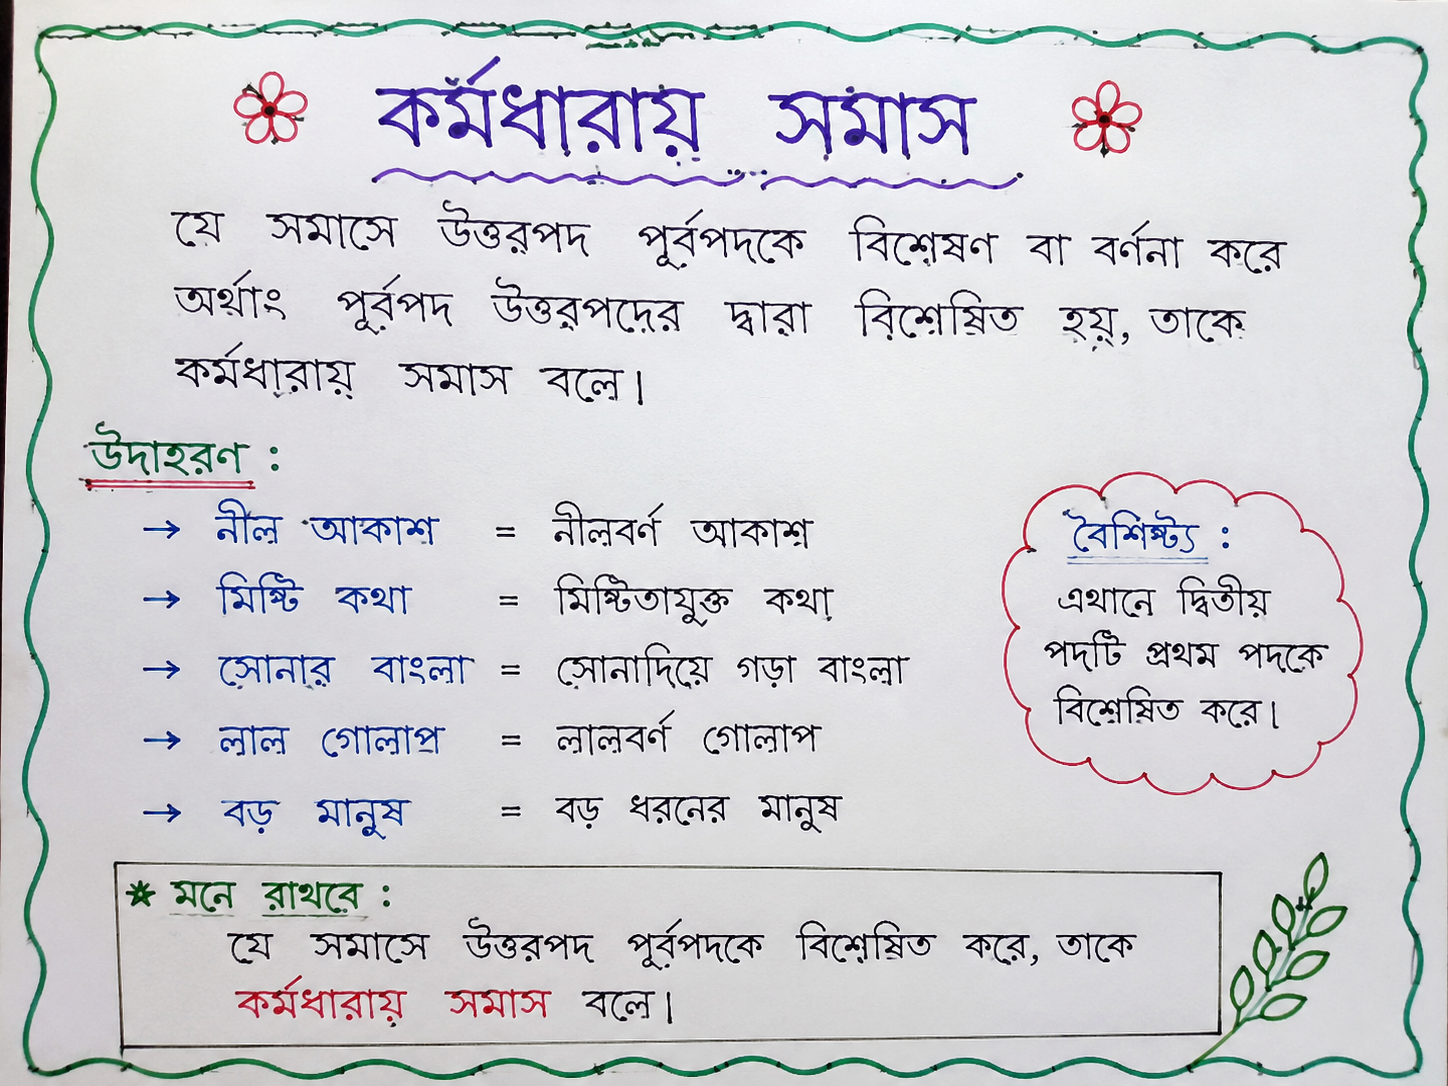 কর্মধারায় সমাস
যে সমাসে উত্তরপদ পূর্বপদকে বিশেষণ বা বর্ণনা করে
অর্থাৎ পূর্বপদ উত্তরপদের দ্বারা বিশেষিত হয়, তাকে
কর্মধারায় সমাস বলে।
উদাহরণ :
→ নীল আকাশ = নীলবর্ণ আকাশ
→ মিষ্টি কথা = মিষ্টিতাযুক্ত কথা
→ সোনার বাংলা = সোনাদিয়ে গড়া বাংলা
→ লাল গোলাপ = লালবর্ণ গোলাপ
→ বড় মানুষ = বড় ধরনের মানুষ
বৈশিষ্ট্য :
এখানে দ্বিতীয়
পদটি প্রথম পদকে
বিশেষিত করে।
* মনে রাখবে :
যে সমাসে উত্তরপদ পূর্বপদকে বিশেষিত করে, তাকে
কর্মধারায় সমাস বলে।